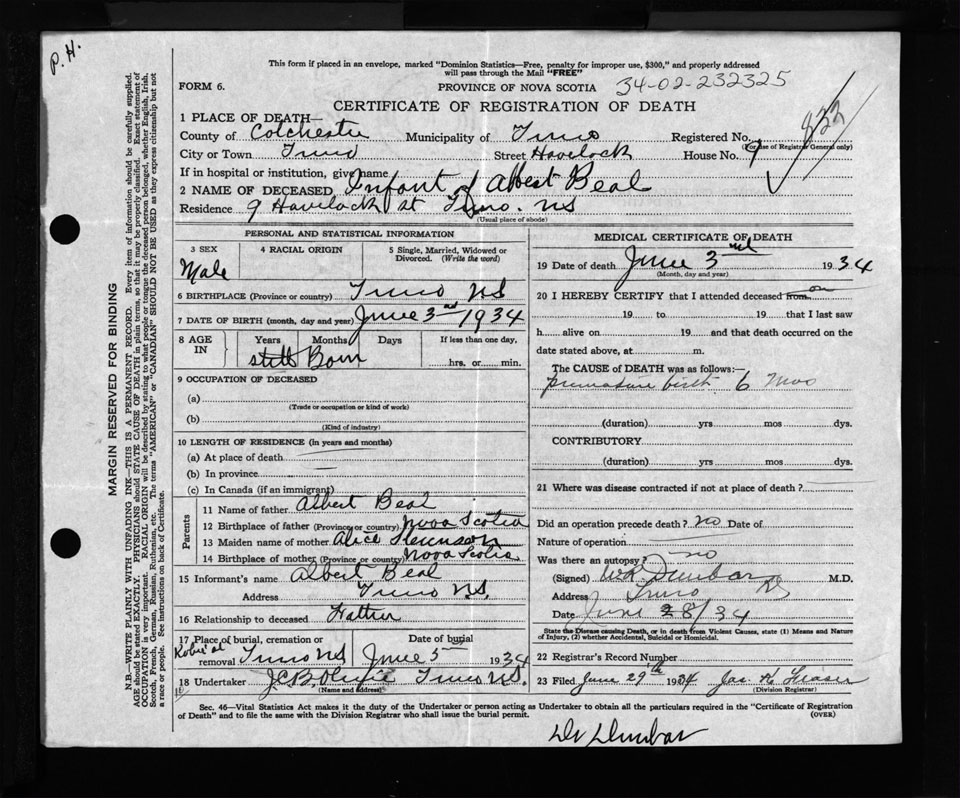 P. H.
This form if placed in an envelope, marked "Dominion Statistics—Free, penalty for improper use, $300," and properly addressed
will pass through the Mail "FREE"
FORM 6.
PROVINCE OF NOVA SCOTIA 34-02-232325
CERTIFICATE OF REGISTRATION OF DEATH
1 PLACE OF DEATH—
County of Colchester Municipality of Truro Registered No.
(For use of Registrar General only)
City or Town Truro Street Havelock House No. 9
If in hospital or institution, give name
2 NAME OF DECEASED Infant of Albert Beal
Residence 9 Havelock st Truro. NS
(Usual place of abode)
PERSONAL AND STATISTICAL INFORMATION
3 SEX 4 RACIAL ORIGIN 5 Single, Married, Widowed or
Divorced. (Write the word)
Male
6 BIRTHPLACE (Province or country) Truro NS
7 DATE OF BIRTH (month, day and year) June 3rd 1934
8 AGE IN Years Months Days If less than one day,
still Born hrs. or min.
9 OCCUPATION OF DECEASED
(a)
(Trade or occupation or kind of work)
(b)
(Kind of industry)
10 LENGTH OF RESIDENCE (in years and months)
(a) At place of death
(b) In province
(c) In Canada (if an immigrant)
Parents
11 Name of father Albert Beal
12 Birthplace of father (Province or country) Nova Scotia
13 Maiden name of mother Alice
14 Birthplace of mother (Province or country) Nova Scotia
15 Informant's name Albert Beal
Address Truro N.S.
16 Relationship to deceased Father
17 Place of burial, cremation or Date of burial
removal Truro NS June 5 1934
18 Undertaker Truro N.S.
(Name and address)
MEDICAL CERTIFICATE OF DEATH
19 Date of death June 3rd 1934
(Month, day and year)
20 I HEREBY CERTIFY that I attended deceased from on
19 to 19 that I last saw
h alive on 19 and that death occurred on the
date stated above, at m.
The CAUSE of DEATH was as follows:—
premature birth 6 mos
(duration) yrs mos dys.
CONTRIBUTORY
(duration) yrs. mos dys.
21 Where was disease contracted if not at place of death?
Did an operation precede death? no Date of
Nature of operation
Was there an autopsy? no
(Signed) Dunbar M.D.
Address Truro NS
Date June 28/34
State the Disease causing Death, or in death from Violent Causes, state (1) Means and Nature
of Injury, (2) whether Accidental, Suicidal or Homicidal.
22 Registrar's Record Number
23 Filed June 29th 1934 Jas. Fraser
(Division Registrar)
Sec. 46—Vital Statistics Act makes it the duty of the Undertaker or person acting as Undertaker to obtain all the particulars required in the "Certificate of Registration
of Death" and to file the same with the Division Registrar who shall issue the burial permit. (OVER)
Dr Dunbar
MARGIN RESERVED FOR BINDING
N.B.—WRITE PLAINLY WITH UNFADING INK—THIS IS A PERMANENT RECORD. Every item of information should be carefully supplied.
AGE should be stated EXACTLY. PHYSICIANS should STATE CAUSE OF DEATH in plain terms, so that it may be properly classified. Exact statement of
OCCUPATION is very important. RACIAL ORIGIN will be described by stating to what people or tongue the deceased person belonged, whether English, Irish,
Scotch, French, German, Russian, Ruthenian, etc. The terms "AMERICAN" or "CANADIAN" SHOULD NOT BE USED as they express citizenship but not
a race or people. See instructions on back of Certificate.